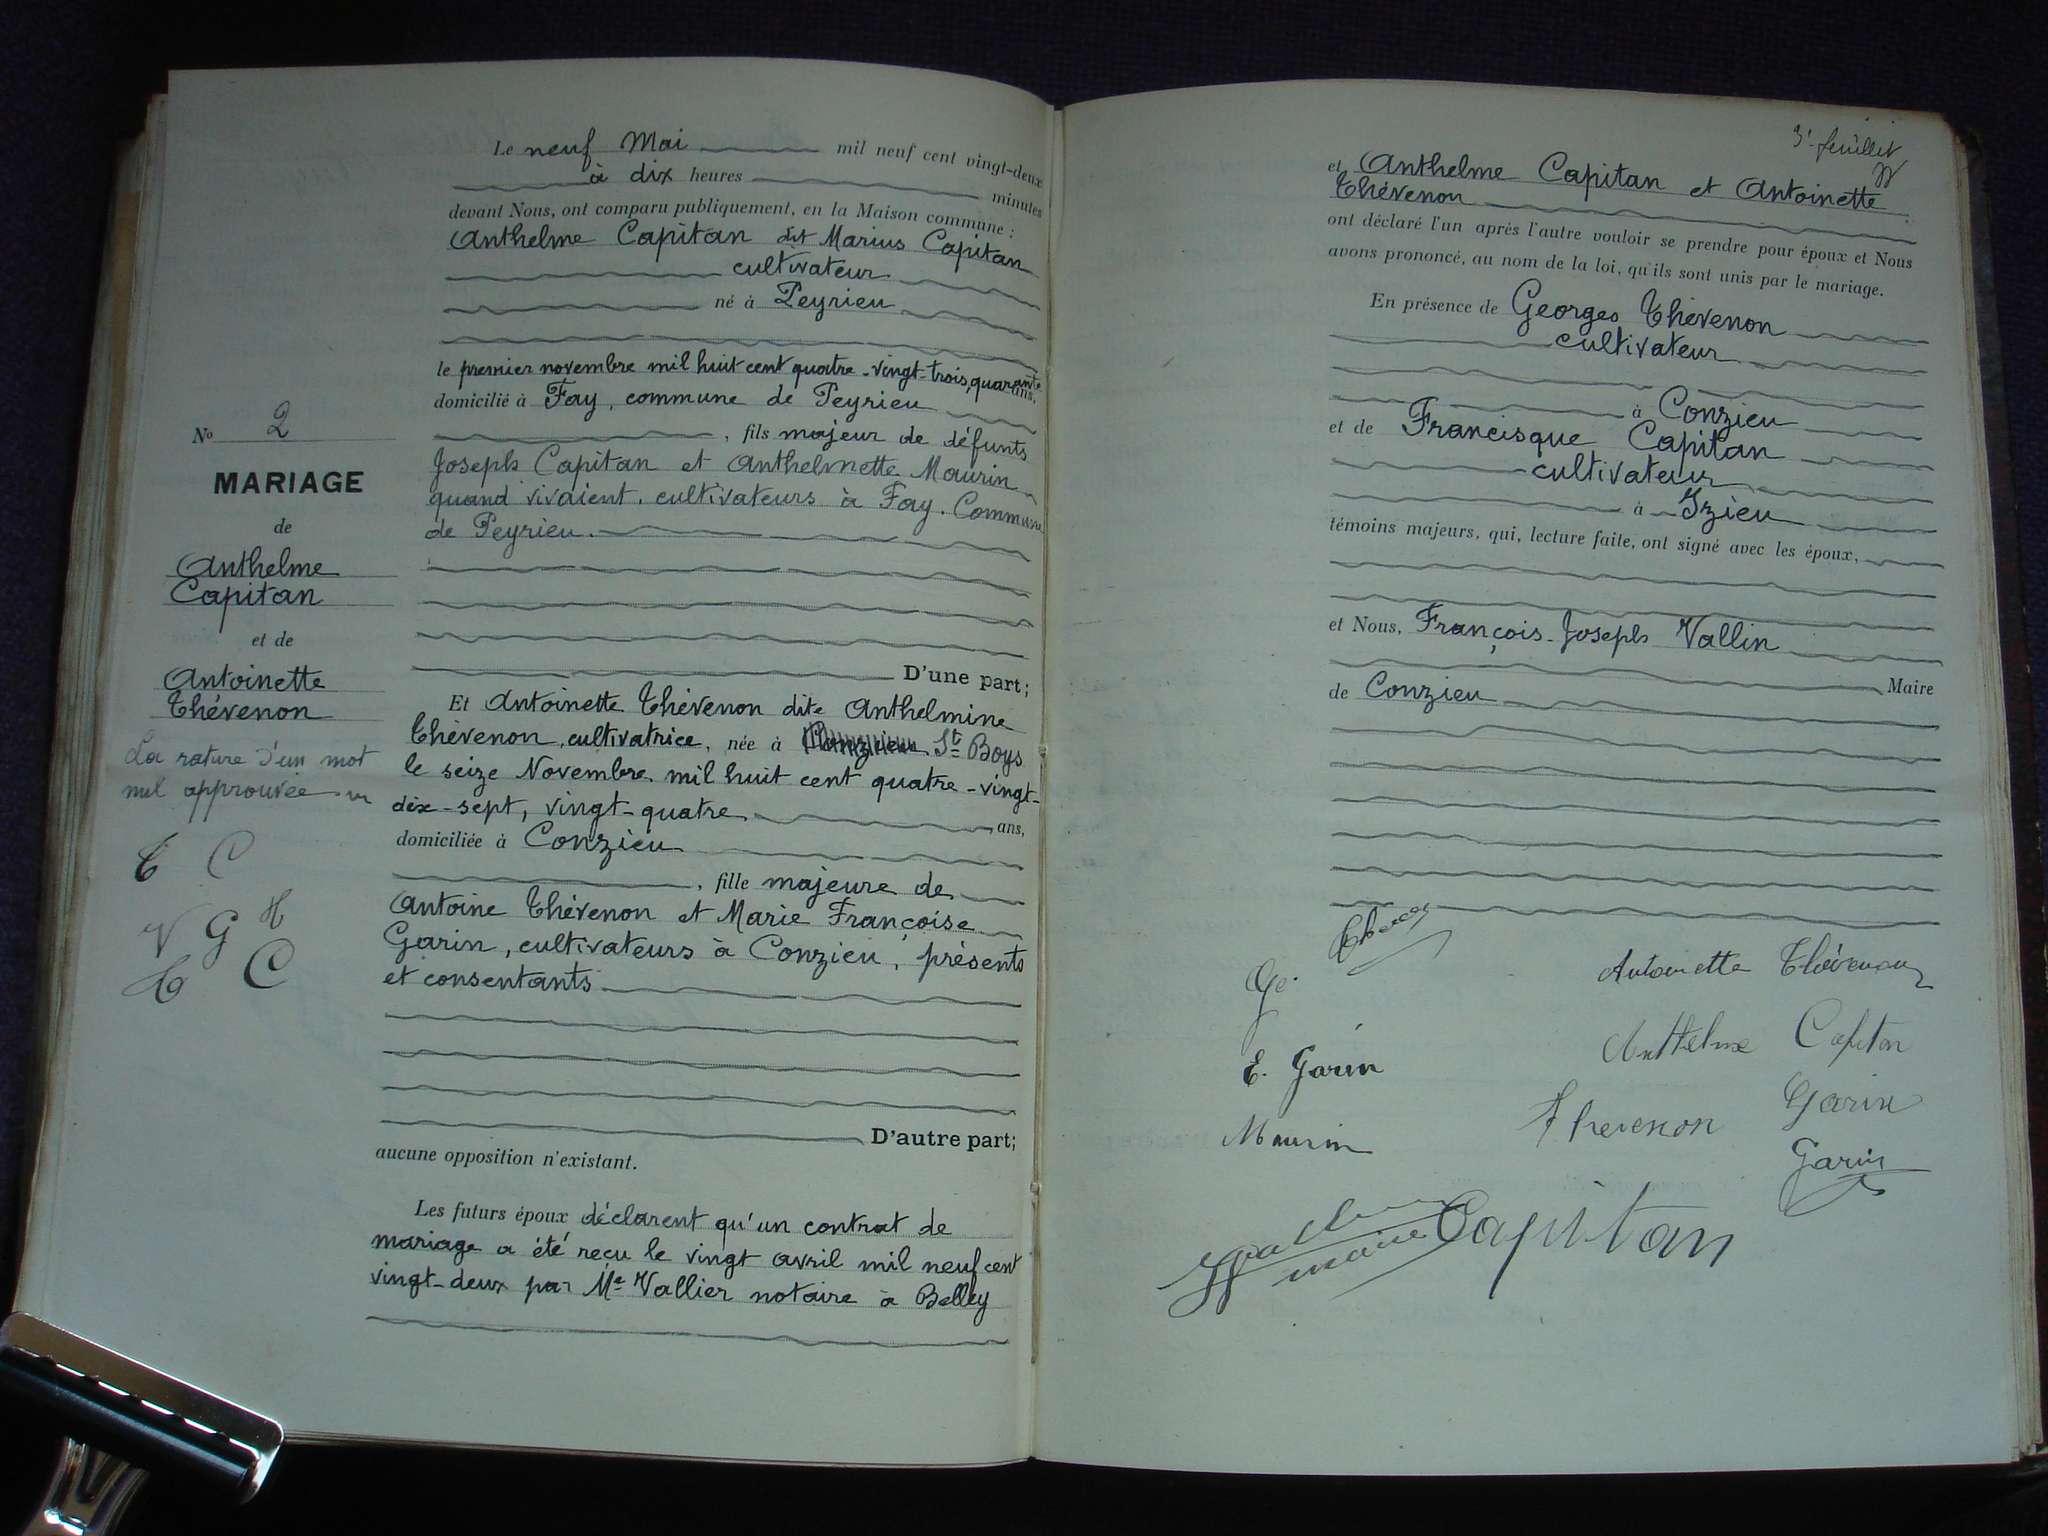 Le neuf Mai mil neuf cent vingt-deux
à dix heures minutes
devant Nous, ont comparu publiquement, en la Maison commune :
Anthelme Capitan dit Marius Capitan
cultivateur
né à Peyrieu
le premier novembre mil huit cent quatre-vingt-trois, quarante ans,
domicilié à Fay, commune de Peyrieu
, fils majeur de défunts
Joseph Capitan et Anthelmette Maurin
quand vivaient, cultivateurs à Fay. Commune
de Peyrieu.
D'une part;
Et Antoinette Thévenon dite Anthelmine
Thévenon, cultivatrice, née à St Boys
le seize Novembre mil huit cent quatre-vingt-
dix-sept, vingt-quatre ans,
domiciliée à Conzieu
, fille majeure de
Antoine Thévenon et Marie Françoise
Garin, cultivateurs à Conzieu, présents
et consentants
D'autre part;
aucune opposition n'existant.
Les futurs époux déclarent qu'un contrat de
mariage a été reçu le vingt avril mil neuf cent
vingt-deux par Me Vallier notaire à Belley
No 2
MARIAGE
de
Anthelme
Capitan
et de
Antoinette
Thévenon
La rature d'un mot
nul approuvée
T C
V G H
C
3e feuillet
et Anthelme Capitan et Antoinette
Thévenon
ont déclaré l'un après l'autre vouloir se prendre pour époux et Nous
avons prononcé, au nom de la loi, qu'ils sont unis par le mariage.
En présence de Georges Thévenon
cultivateur
à Conzieu
et de Francisque Capitan
cultivateur
à Izieu
témoins majeurs, qui, lecture faite, ont signé avec les époux,
et Nous, François-Joseph Vallin
Maire
de Conzieu
Ge.
Antoinette Thévenon
E. Garin
Anthelme Capitan
Maurin
Thevenon
Garin
Garin
maire
Capitan